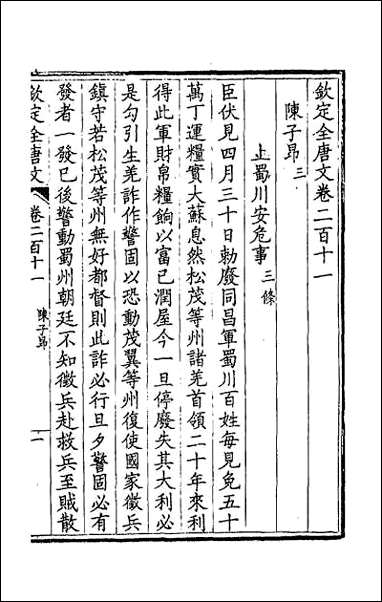 欽定全唐文卷二百十一
陳子昂三
上蜀川安危事三條
臣伏見四月三十日勅廢同昌軍蜀川百姓每見免五十
萬丁運糧實大蘇息然松茂等州諸羌首領二十年來利
得此軍財帛糧餉以富已潤屋今一旦停廢失其大利必
是勾引生羌詐作警固以恐動茂翼等州復使國家徵兵
鎮守若松茂等州無好都督則此詐必行旦夕警固必有
發者一發已後警動蜀州朝廷不知徵兵赴救兵至賊散
欽定全唐文
卷二百十一
陳子昂
一